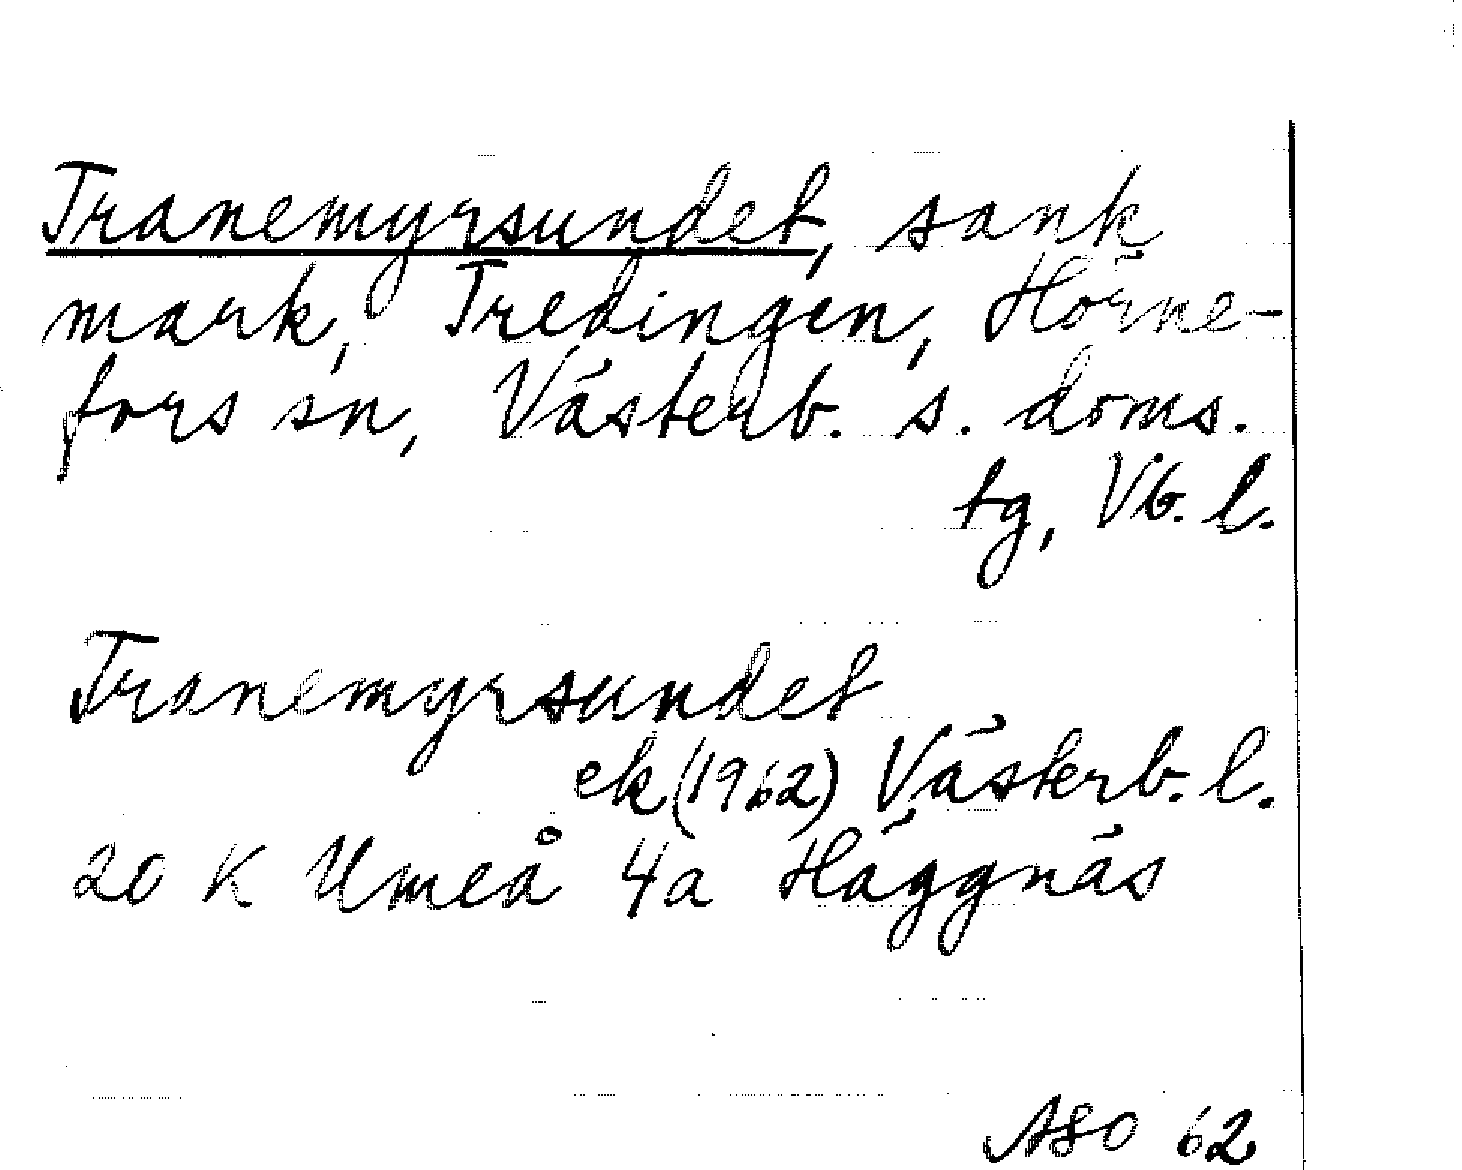 Tranemyrsundet, sank
mark, Tredingen, Hörne-
fors sn, Västerb. s. doms.
tg, Vb. l.
Tranemyrsundet
ek (1962) Västerb. l.
20 K Umeå 4a Häggnäs
ASO 62